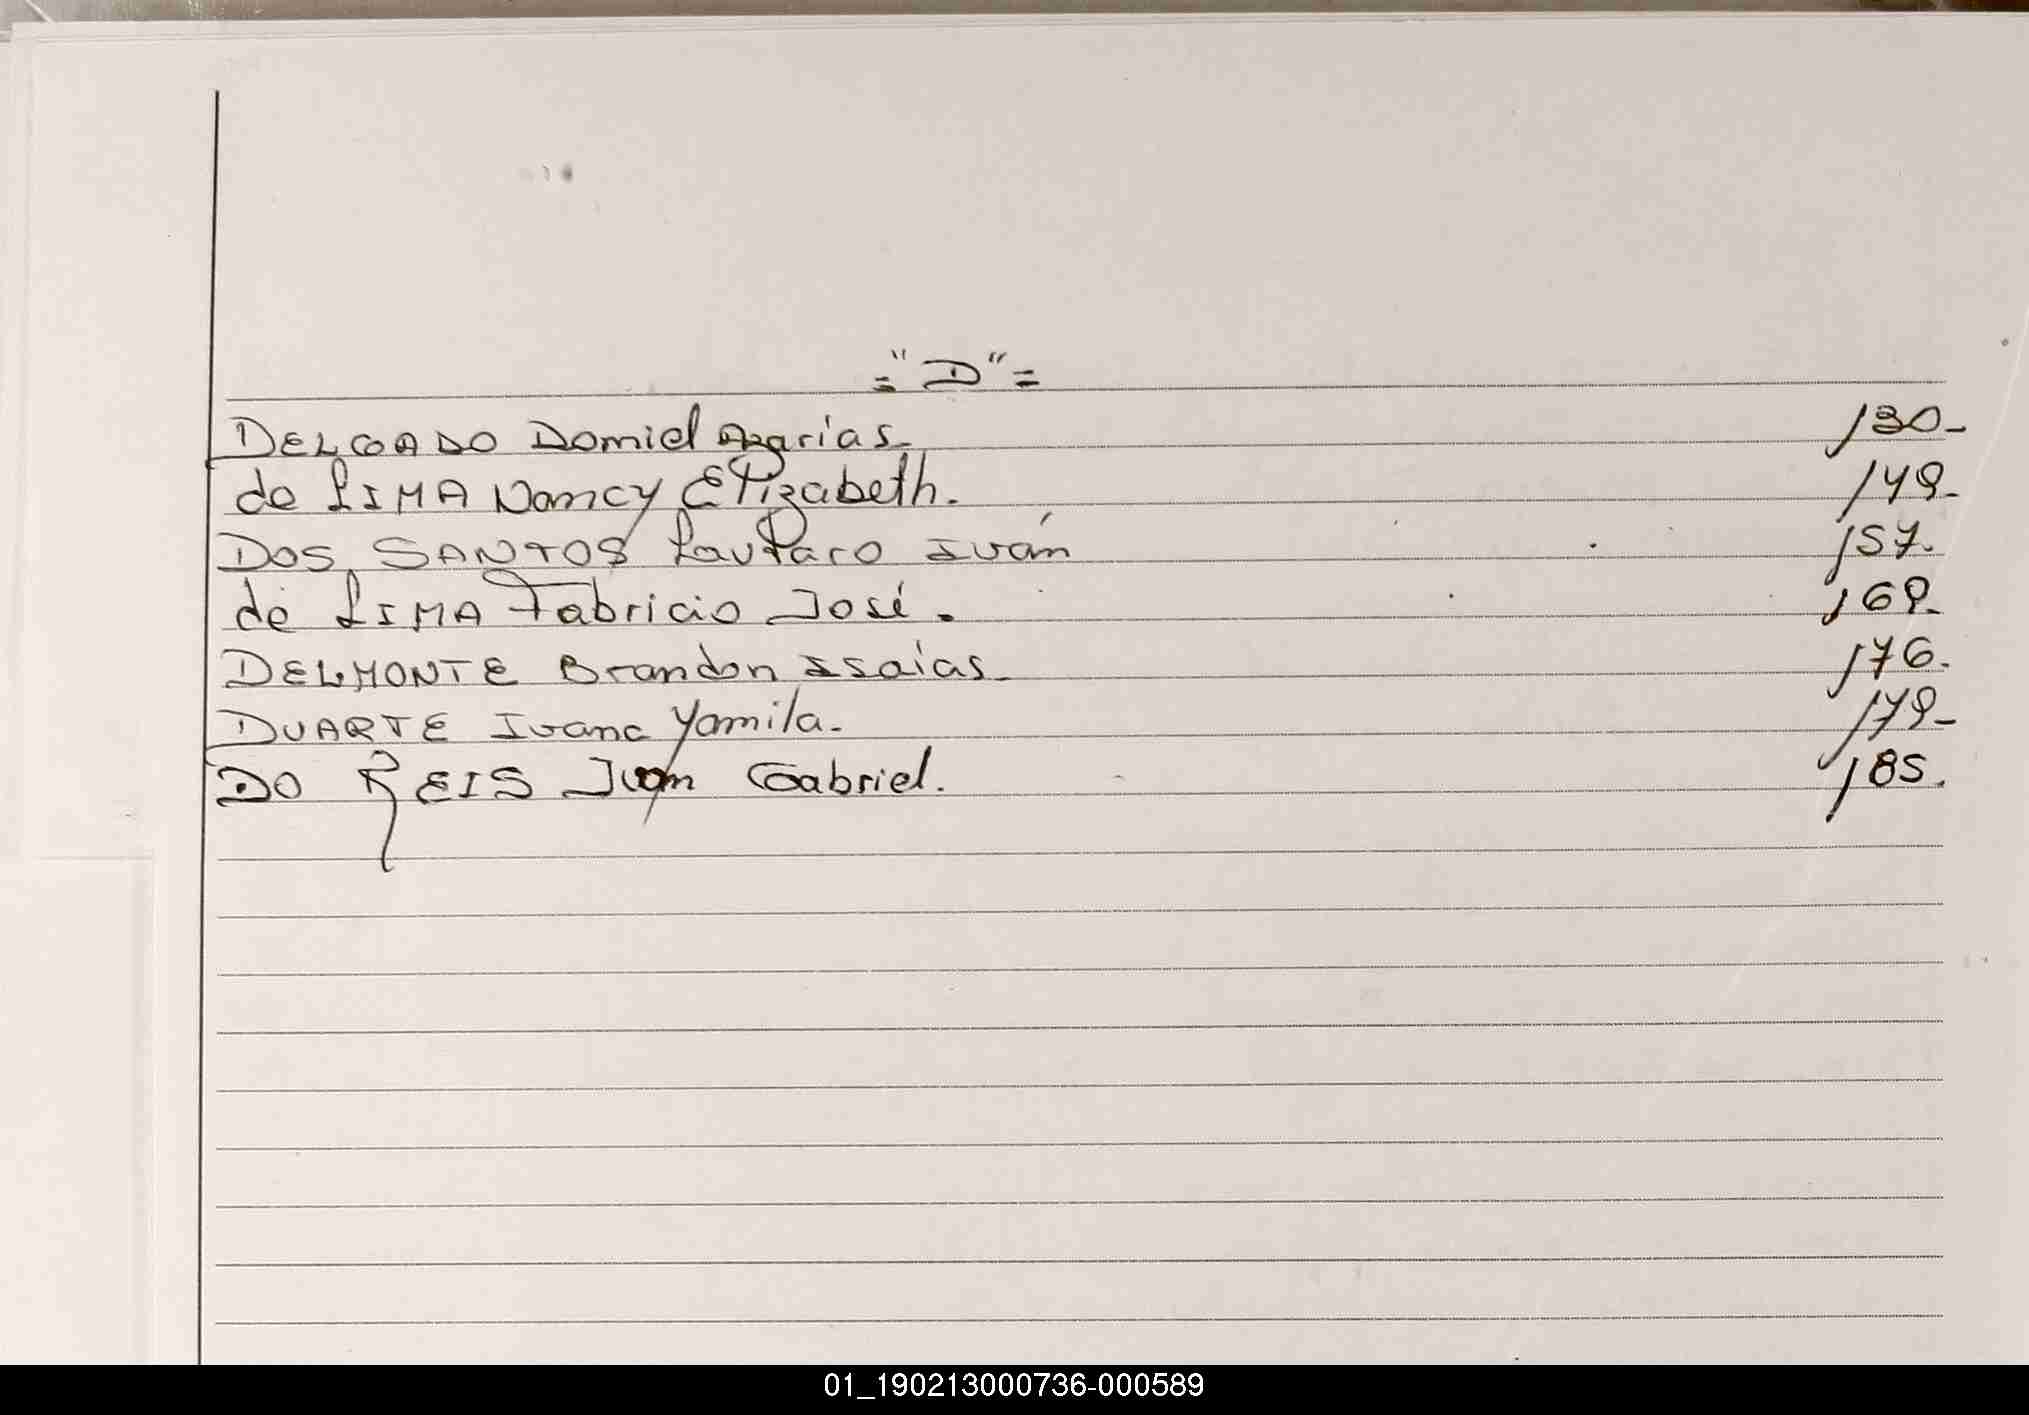 = "D" =
DELGADO Daniel Azarias. 130-
de LIMA Nancy Elizabeth. 149-
DOS SANTOS Lautaro Iván 157.
de LIMA Fabricio José. 169-
DELMONTE Brandon Isaías. 176.
DUARTE Ivana Yamila. 179-
DO REIS Juan Gabriel. 185.
01_190213000736-000589